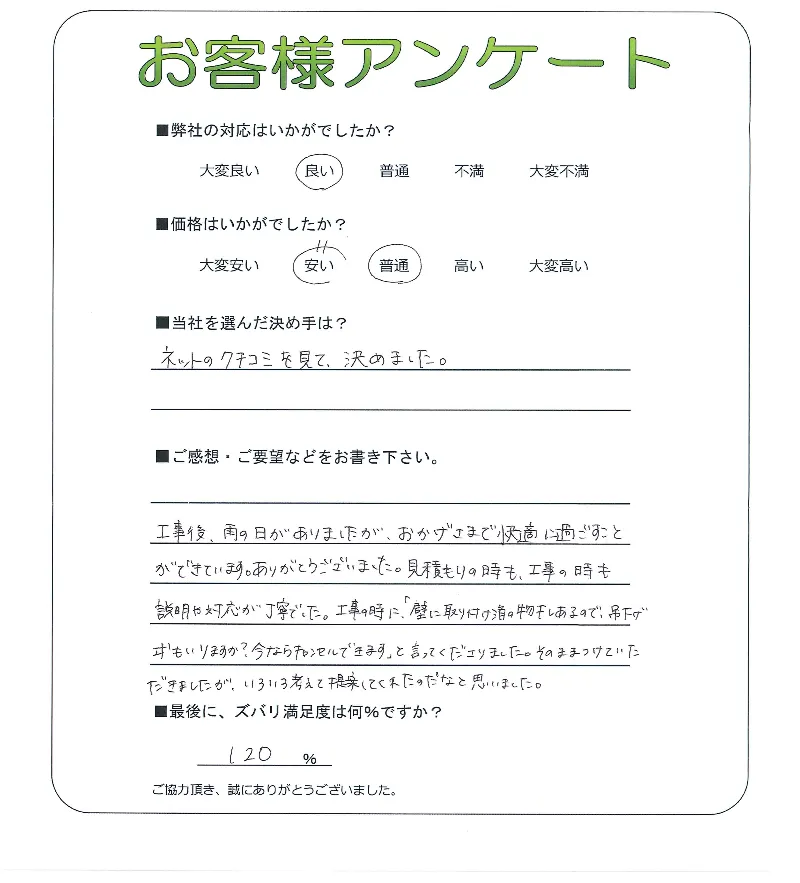 お客様アンケート
■弊社の対応はいかがでしたか？
大変良い 良い 普通 不満 大変不満
■価格はいかがでしたか？
大変安い 安い 普通 高い 大変高い
■当社を選んだ決め手は？
ネットのクチコミを見て、決めました。
■ご感想・ご要望などをお書き下さい。
工事後、雨の日がありましたが、おかげさまで快適に過ごすこと
ができています。ありがとうございました。見積もりの時も、工事の時も
説明や対応が丁寧でした。工事の時に、「壁に取り付け済の物干しあるので、吊下げ
干もいりますか？今ならキャンセルできます」と言ってくださりました。そのままつけていた
だきましたが、いろいろ考えて提案してくれたのだなと思いました。
■最後に、ズバリ満足度は何％ですか？
120 ％
ご協力頂き、誠にありがとうございました。